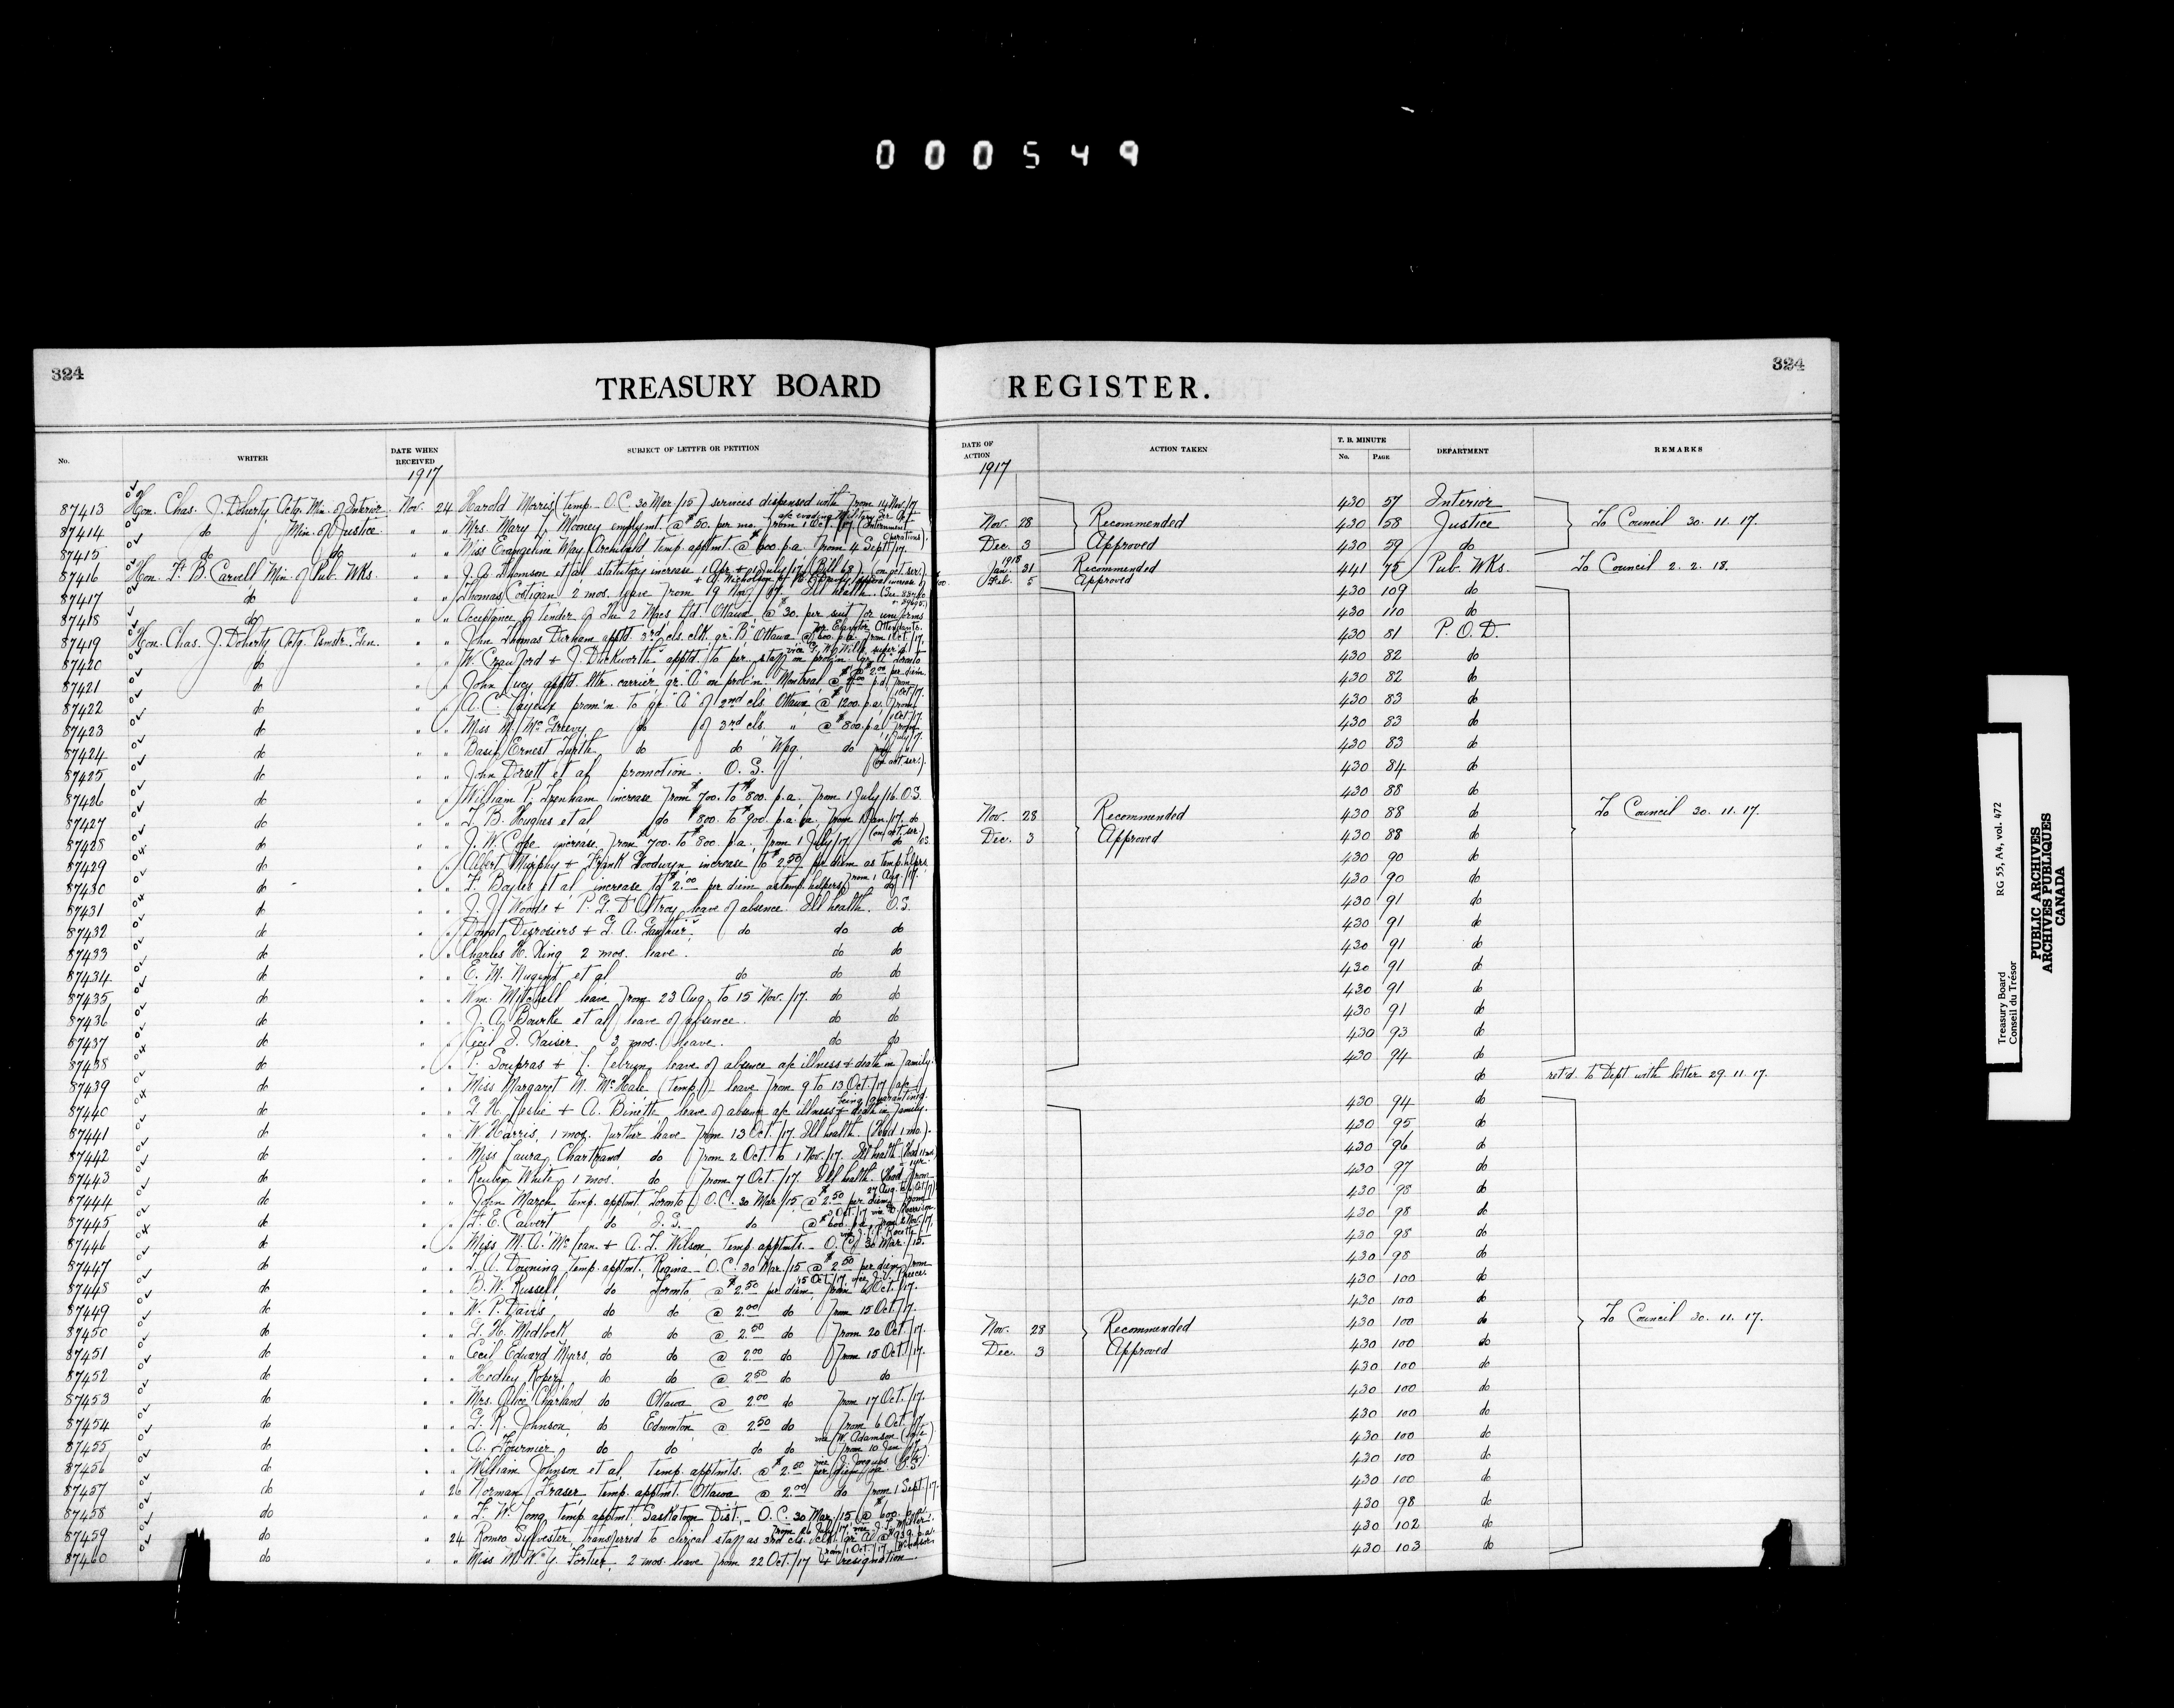 000549
324
324
TREASURY BOARD REGISTER.
No. WRITER DATE WHEN RECEIVED SUBJECT OF LETTER OR PETITION DATE OF ACTION ACTION TAKEN T. B. MINUTE No. PAGE DEPARTMENT REMARKS
1917 1917
87413 Hon. Chas. J. Doherty Actg. Min. of Interior Nov. 24 Harold Morris (temp. O.C. 30 Mar/15) services dispensed with from 14 Nov./17. 430 57 Interior
a/c evading Military Ser. Act
87414 do Min. of Justice " " Mrs. Mary J. Mooney emplymt. @ $50. per mo. from 1 Oct./17 (Internment Operations). Nov. 28 Recommended 430 58 Justice To Council 30.11.17.
87415 do do " " Miss Evangeline May Archibald temp. apptmt. @ $600 p.a. from 4 Sept/17. Dec. 3 Approved 430 59 do
87416 Hon. F. B. Carvell Min. of Pub. Wks. " " J. G. Thomson et al statutory increase 1 Apr. + July/17 (Bill 63) (on act. ser.) 1918 Jan. 31 Recommended 441 75 Pub. Wks. To Council 2.2.18.
Feb. 5 Approved
87417 do " " Thomas Costigan 2 mos. leave from 19 Nov./17. Ill health. 430 109 do
87418 do " " Acceptance of tender of The 2 Macs Ltd. Ottawa @ $30. per suit for uniforms 430 110 do
for Elevator Attendants.
87419 Hon. Chas. J. Doherty Actg. Psmstr. Gen. " " John Thomas Durham apptd. 3rd cls. clk. gr. "B" Ottawa @ $600. p.a. from 1 Oct./17. 430 81 P.O.D.
87420 do " " W. Crawford + J. Duckworth apptd. to per. staff on prob'n. gr. "A" Toronto 430 82 do
87421 do " " John Lucy apptd. ltr. carrier gr. "A" on prob'n. Montreal @ $2.00 p.d. from 1 Oct/17. 430 82 do
87422 do " " A. C. Cayeux prom'n. to gr. "A" of 2nd cls. Ottawa @ $1200. p.a. from 1 Oct/17. 430 83 do
87423 do " " Miss M. McGreevy do of 3rd cls. " @ $800. p.a. from 1 July/17. 430 83 do
87424 do " " Basil Ernest Furth do do Wpg. do 430 83 do
(on act. ser.).
87425 do " " John Dorsett et al promotion. O.S. 430 84 do
87426 do " " William P. Trenham increase from $700. to $800. p.a. from 1 July/16. O.S. 430 88 do
87427 do " " F. B. Hughes et al do $800. to $900. p.a. from 1 Jan./17. do Nov. 28 Recommended 430 88 do To Council 30.11.17.
(on act. ser.)
87428 do " " J. W. Cope increase from $700. to $800. p.a. from 1 July/17. do Dec. 3 Approved 430 88 do
87429 do " " Albert Murphy + Frank Goodwyn increase to $2.50 per diem as temp. helprs. 430 90 do
from 1 Aug./17.
87430 do " " F. Bayles et al increase to $2.00 per diem as temp. helpers do 430 90 do
87431 do " " J. J. Woods + P. G. D'Altroy leave of absence. Ill health. O.S. 430 91 do
87432 do " " Donat Desrosiers + G. A. Gauthier. do do do 430 91 do
87433 do " " Charles H. King 2 mos. leave. do do 430 91 do
87434 do " " E. M. Nugent et al do do do 430 91 do
87435 do " " Wm. Mitchell leave from 23 Aug. to 15 Nov./17. do do 430 91 do
87436 do " " J. A. Bourke et al leave of absence. do do 430 91 do
87437 do " " Cecil J. Kaiser 3 mos. leave. do do 430 93 do
87438 do " " P. Soupras + L. Lebrun leave of absence a/c illness + death in family. 430 94 do
87439 do " " Miss Margaret M. McHale (temp.) leave from 9 to 13 Oct./17 a/c do ret'd. to Dept with letter 29.11.17.
being quarantined.
87440 do " " G. H. Leslie + A. Binette leave of absence a/c illness + death in family. 430 94 do
87441 do " " W. Harris, 1 mos. further leave from 13 Oct./17. Ill health. (Had 1 mo.). 430 95 do
87442 do " " Miss Laura Chartrand do from 2 Oct. to 1 Nov./17. Ill health 430 96 do
87443 do " " Reuben White 1 mos. do from 7 Oct./17. Ill health. 430 97 do
87444 do " " John March temp. apptmt. Toronto (O.C. 30 Mar./15 @ $2.50 per diem from 430 98 do
87445 do " " F. E. Calvert do do @ $600. p.a. 430 98 do
87446 do " " Miss M. A. McLean + A. L. Wilson temp. apptmts. O.C. 30 Mar./15. 430 98 do
87447 do " " T. A. Downing temp. apptmt. Regina – O.C. 30 Mar./15 @ $2.50 per diem from 430 98 do
87448 do " " B. W. Russell, do Toronto @ $2.50 per diem from Oct./17. 430 100 do
87449 do " " W. P. Davis do do @ 2.00 do from 15 Oct./17. 430 100 do
87450 do " " G. H. Medlock do do @ 2.50 do from 20 Oct./17. Nov. 28 Recommended 430 100 do To Council 30.11.17.
87451 do " " Cecil Edward Myers do do @ 2.00 do from 15 Oct./17. Dec. 3 Approved 430 100 do
87452 do " " Hedley Roper do do @ 2.50 do do 430 100 do
87453 do " " Mrs. Alice Charland do Ottawa @ 2.00 do from 17 Oct./17. 430 100 do
87454 do " " G. R. Johnson do Edmonton @ 2.50 do from 6 Oct./17. 430 100 do
vice W. Adamson
87455 do " " A. Fournier do do do do from 10 Jan./17. 430 100 do
87456 do " " William Johnson et al temp. apptmts. @ $2.50 per diem O.S. 430 100 do
87457 do " 26 Norman Fraser temp. apptmt. Ottawa @ 2.00 do from 1 Sept./17. 430 100 do
87458 do " " F. W. Long temp. apptmt. Saskatoon Dist. – O.C. 30 Mar./15 @ $600. 430 98 do
87459 do " 24 Romeo Sylvester transferred to clerical staff as 3rd cls. clk. 430 102 do
87460 do " " Miss M. W. Y. Fortier 2 mos. leave from 22 Oct./17 + resignation. 430 103 do
Treasury Board
Conseil du Trésor
RG 55, A4, vol. 472
PUBLIC ARCHIVES
ARCHIVES PUBLIQUES
CANADA